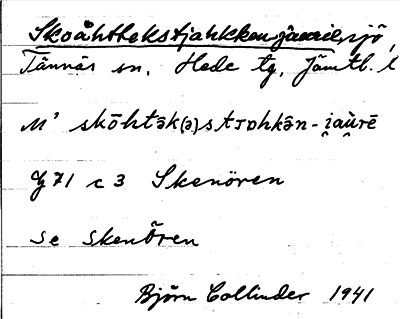 Skoåhthekstjahkkenjaurie, sjö,
Tännäs sn. Hede tg. Jämtl. l
M' skōhtək(ə)stjɒhkən-i̯au̯rē
G 71 c 3 Skenören
Se Skenören
Björn Collinder 1941